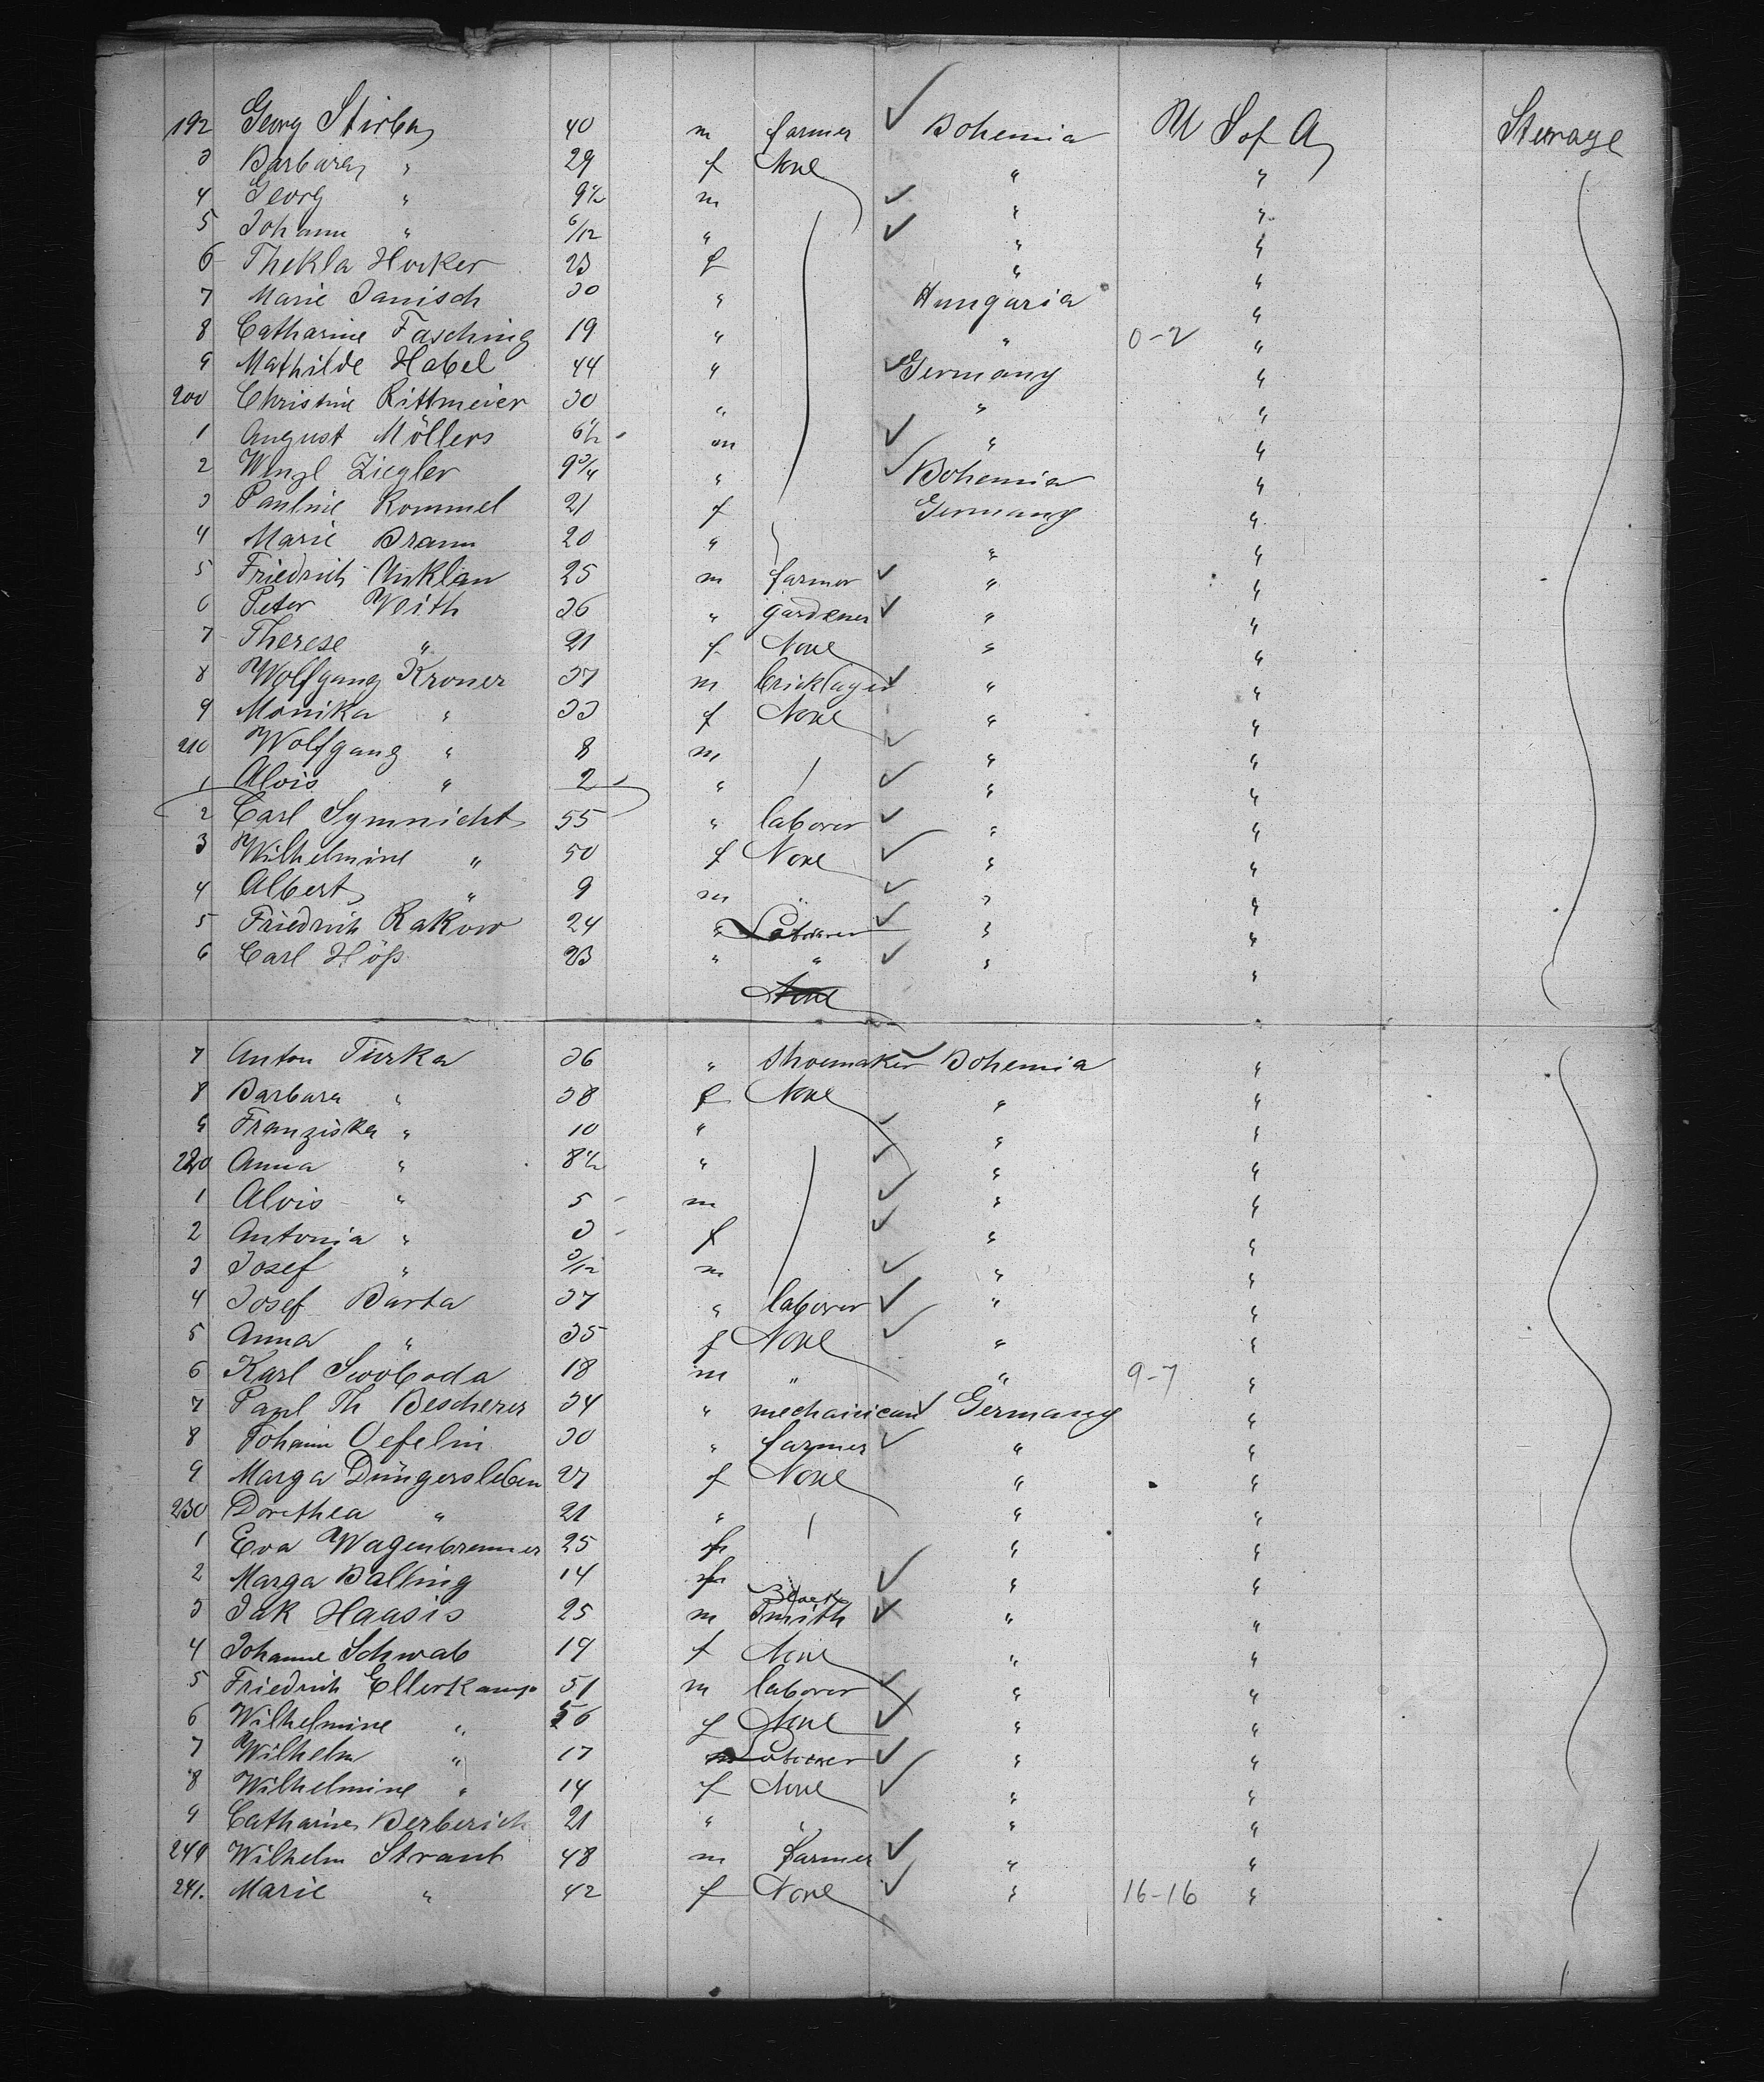 192 Georg Stirba 40 m farmer ✓ Bohemia U S of A Steerage
3 Barbara " 29 f None " "
4 Georg " 9 1/2 m ✓ " "
5 Johann " 6/12 " ✓ " "
6 Thekla Hocker 23 f " "
7 Marie Janisch 30 " Hungaria "
8 Catharine Fasching 19 " " 0-2 "
9 Mathilde Habel 44 " ✓ Germany "
200 Christine Rittmeier 30 " " "
1 August Möllers 6 1/2 m ✓ " "
2 Wenzl Ziegler 9 3/4 " ✓ Bohemia "
3 Pauline Rommel 21 f Germany "
4 Marie Braun 20 " " "
5 Friedrich Anklan 25 m farmer ✓ " "
6 Peter Veith 36 " gardener ✓ " "
7 Therese " 21 f None " "
8 Wolfgang Kroner 37 m bricklayer ✓ " "
9 Monika " 33 f None " "
210 Wolfgang " 8 m ✓ " "
1 Alois " 2 " ✓ " "
2 Carl Symnicht 55 " laborer ✓ " "
3 Wilhelmine " 50 f None ✓ " "
4 Albert " 9 m " ✓ " "
5 Friedrich Rakow 24 " Laborer ✓ " "
6 Carl Höß 23 " " ✓ " "
None
7 Anton Turka 36 " shoemaker ✓ Bohemia "
8 Barbara " 38 f None " "
9 Franziska " 10 " ✓ " "
220 Anna " 8 1/2 " ✓ " "
1 Alois " 5 m ✓ " "
2 Antonia " 3 f ✓ " "
3 Josef " 3/12 m ✓ " "
4 Josef Barta 37 " laborer ✓ " "
5 Anna " 35 f None ✓ " "
6 Karl Swoboda 18 m " " 9-7 "
7 Paul Th Bescherer 34 " mechanican ✓ Germany "
8 Johann Oefelin 30 " farmer ✓ " "
9 Marga Düngersleben 27 f None " "
230 Dorothea " 21 " " "
1 Eva Wagenbrenner 25 f " "
2 Marga Balling 14 f ✓ " "
3 Jak Haasis 25 m Black Smith ✓ " "
4 Johanne Schwab 19 f None " "
5 Friedrich Ellerkamp 51 m laborer ✓ " "
6 Wilhelmine " 56 f None ✓ " "
7 Wilhelm " 17 m Laborer ✓ " "
8 Wilhelmine " 14 f None ✓ " "
9 Catharine Berberich 21 " " " "
240 Wilhelm Straub 48 m farmer ✓ " "
241. Marie " 42 f None ✓ " 16-16 "